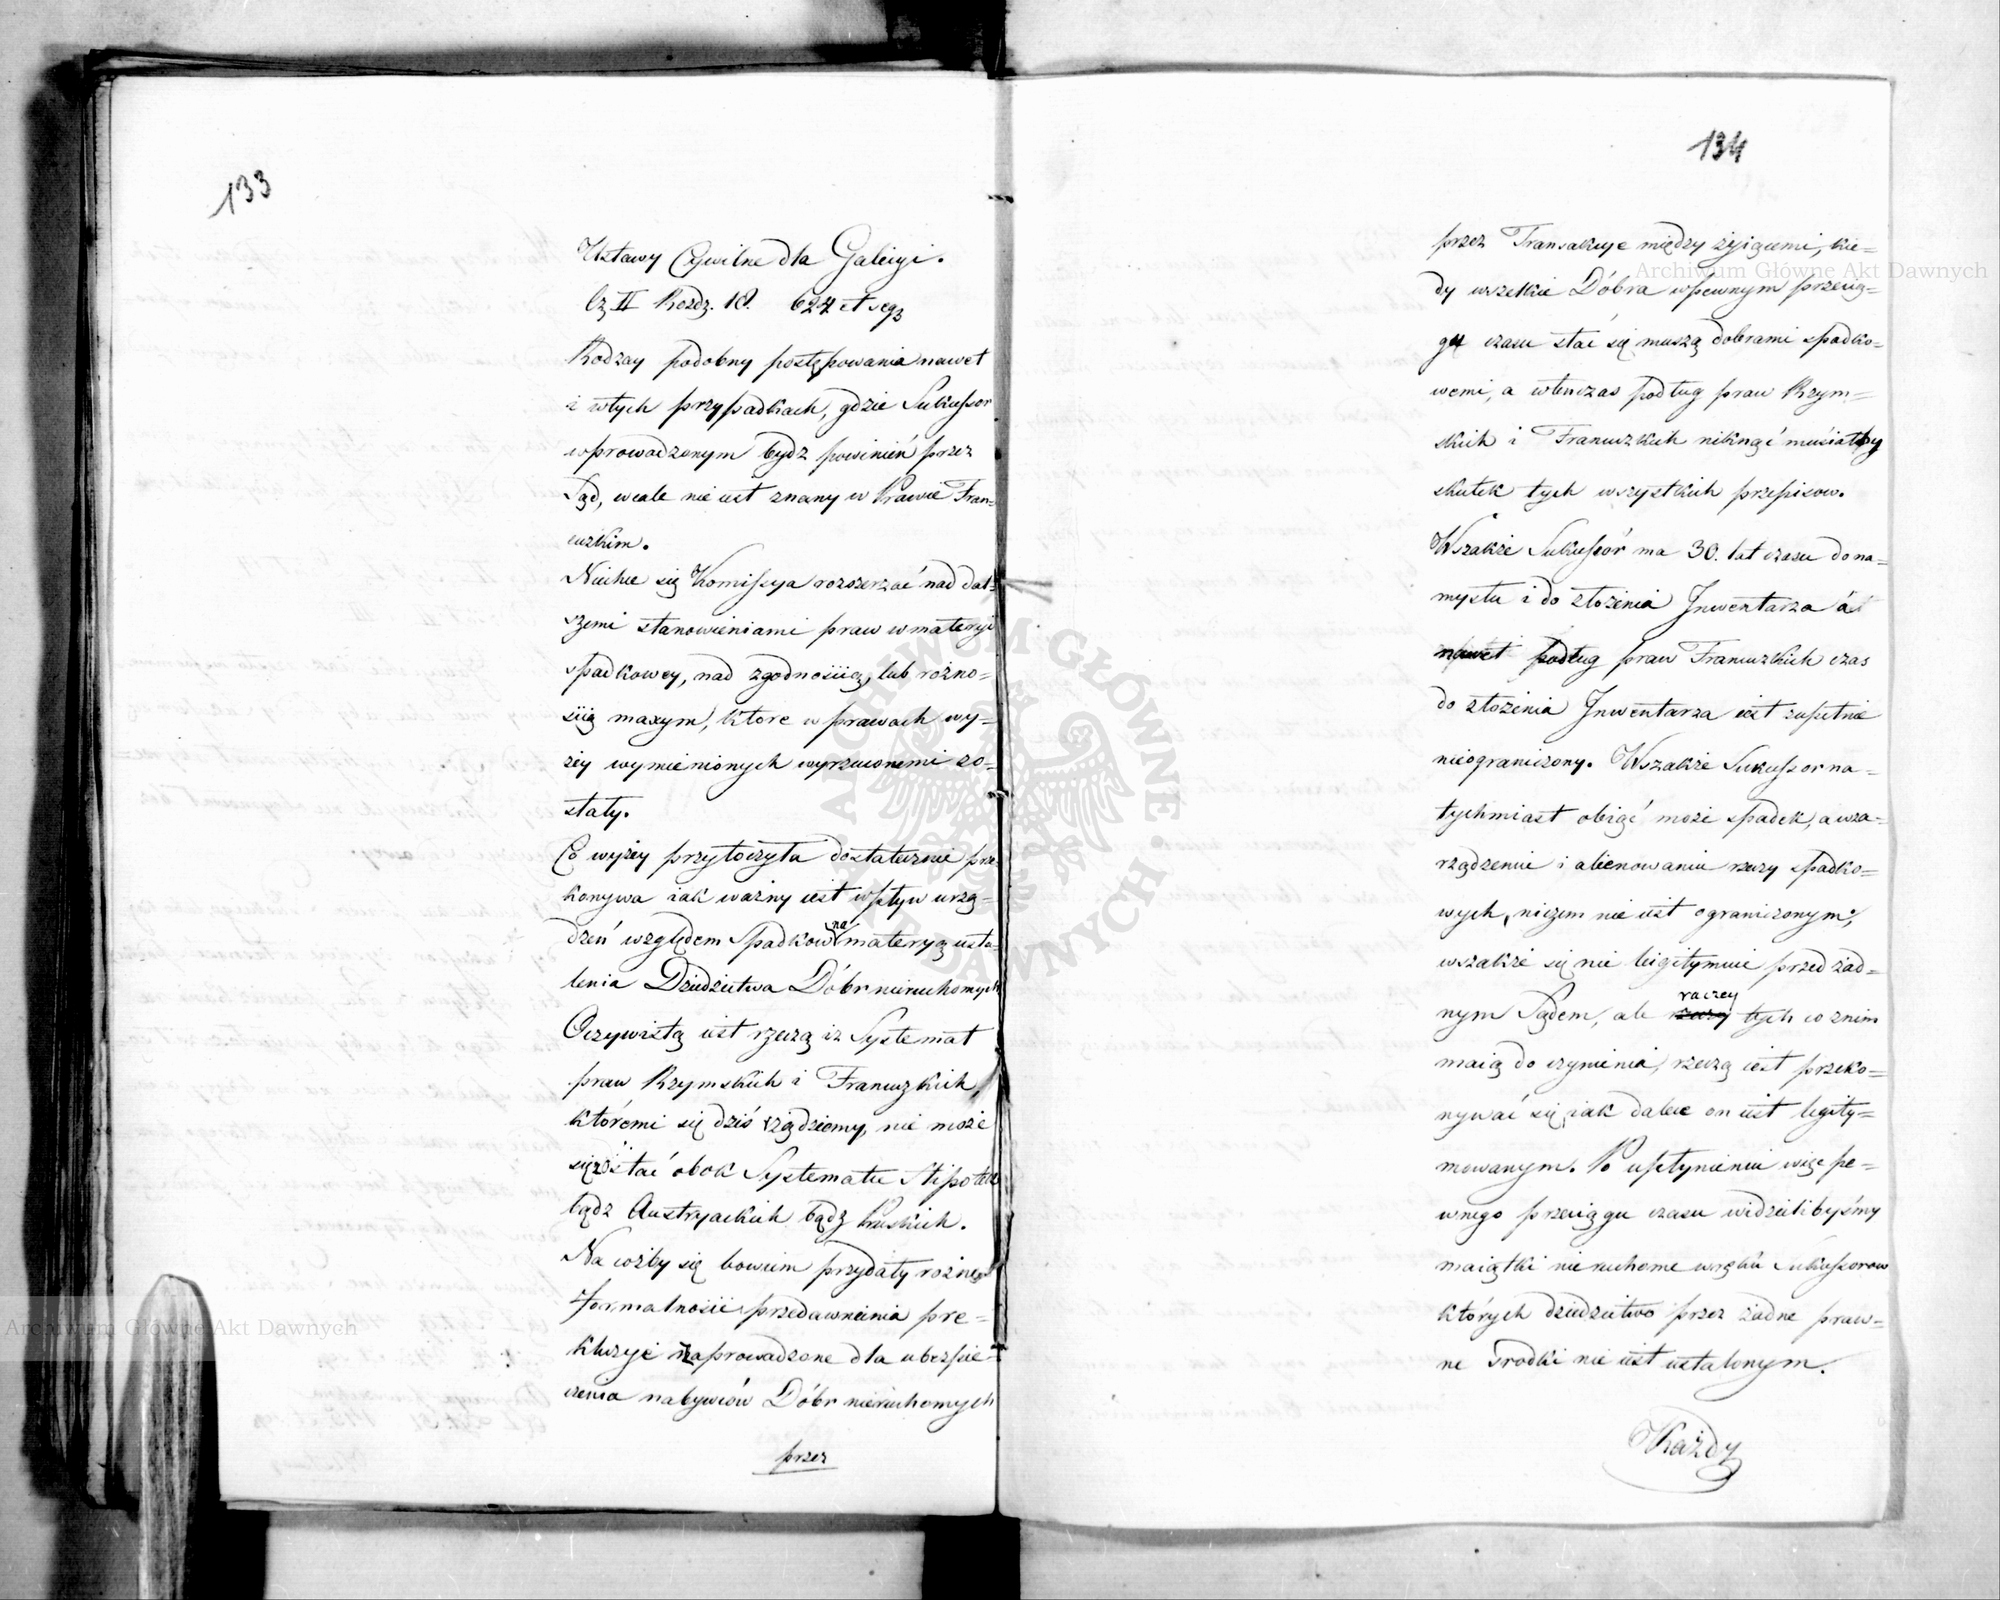 133
Ustawy Cywilne dla Galicyi.
Cz II Rozdz. 18. 624 et seqz
Rodzay podobny postępowania nawet
i wtych przypadkach, gdzie Sukussor
wprowadzonym bydz powinień przez
Sąd, wcale nie iest znany w Prawie Fran=
cuzkim.
Niechce się Komissya rozszerzać nad dal=
szemi stanowieniami praw w materyi
spadkowey, nad zgodnością lub rożno=
ścią maxym, ktore w prawach wy=
żey wymienionych wyrzeczonemi zo=
stały.
Co wyżey przytoczyła dostatecznie prze
konywa iak ważny iest wpływ urzą=
dzeń względem Spadkow na materyą usta=
lenia Dziedzictwa Dóbr nieruchomych
Oczywistą iest rzeczą iz Systemat
praw Rzymskich i Francuzkich,
któremi się dziś rządziemy, nie może
się zostać obok Systematu Hipotek
bądz Austryackich bądz Pruskich.
Na cożby się bowiem przydały rożne
formalności przedawnienia pre=
kluzye zaprowadzone dla ubezpie=
czenia nabywców Dóbr nieruchomych
przez
134
przez Transakcye między żyiącemi, kie=
dy wszelkie Dóbra wpewnym przecią=
gu czasu stać się muszą dobrami spadko=
wemi, a wtenczas podług praw Rzym=
skich i Francuzkich niknąć musiałby
skutek tych wszystkich przepisow.
Wszakże Sukussór ma 30. lat czasu do na=
mysłu i do złożenia Inwentarza a
nawet podług praw Francuzkich czas
do złożenia Inwentarza iest zupełnie
nieograniczony. Wszakże Sukussor na=
tychmiast obiąć może spadek, a wza=
rządzeniu i alienowaniu rzeczy spadko=
wych, niczem nie iest ograniczonym;
wszakże się nie legitymuie przed żad=
nym Sądem, ale raczey tych co znim
maią do czynienia, rzeczą iest przeko=
nywać się iak dalece on iest legity=
mowanym. Po upłynieniu więc pe=
wnego przeciągu czasu widzielibyśmy
maiątki nieruchome wręku Sukussorow
których dziedzictwo przez żadne praw=
ne srodki nie iest ustalonym.
Każdy
Archiwum Główne Akt Dawnych
Archiwum Główne Akt Dawnych
ARCHIWUM GŁÓWNE AKT DAWNYCH